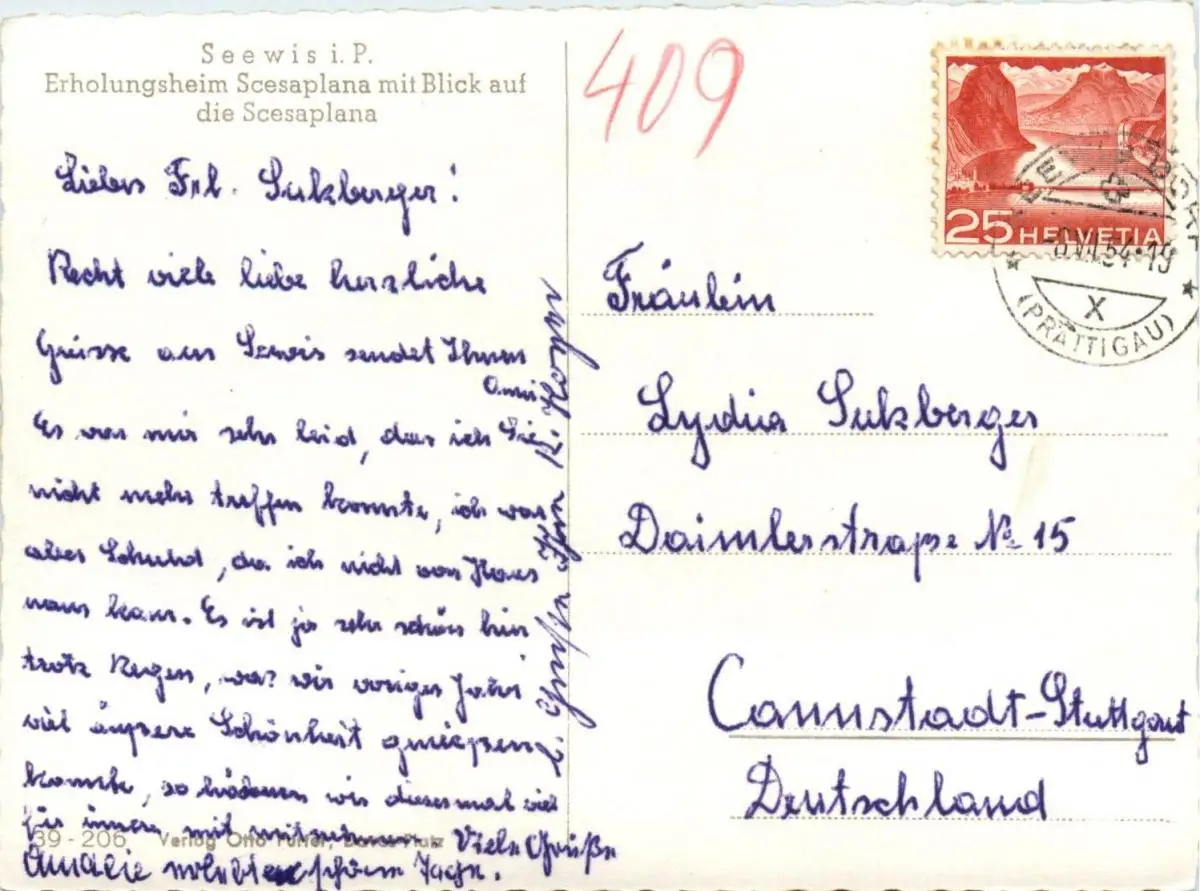 Seewis i. P.
Erholungsheim Scesaplana mit Blick auf
die Scesaplana
409
25 HELVETIA
VII.54·19
X
(PRÄTTIGAU)
Liebes Frl. Sulzberger!
Recht viele liebe herzliche
Grüsse aus Sewis sendet Ihnen
Es war mir sehr leid, das ich Sie
nicht mehr treffen konnte, ich war
aber Schuld, da ich nicht von Haus
naus kam. Es ist ja sehr schön hier
trotz Regen, was wir voriges Jahr
viel äußere Schönheit genießen
konnte, so können wir diesesmal viel
für innen mit
Viele Grüße
Amalie schöne Tage.
l. Grüße Ihr R. Hoyer
39 - 206 Verlag Otto Furter, Davos-Platz
Fräulein
Lydia Sulzberger
Daimlerstraße No 15
Cannstadt-Stuttgart
Deutschland